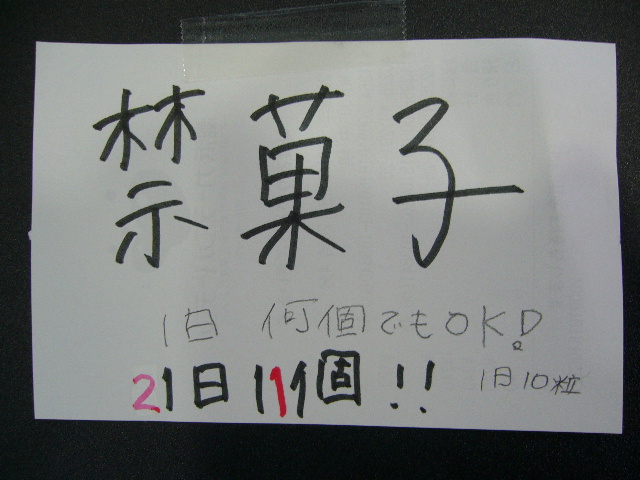 禁菓子
1日 何個でもOK!?
21日111個!!
1日10粒